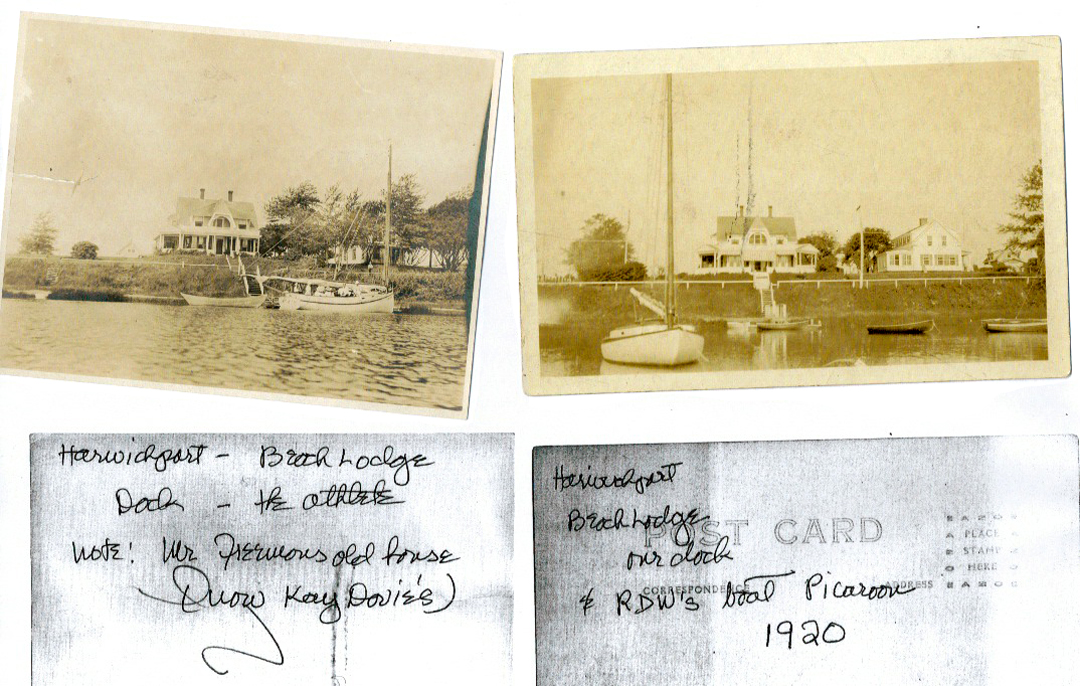 Harwichport - Beach Lodge
Dock - the athlete
Note: Mr Freemons old house
(now Kay Davie's)
Harwichport
Beach Lodge
POST CARD
our dock
CORRESPONDENCE
ADDRESS
& RDW's boat Picaroon
1920
PLACE
STAMP
HERE